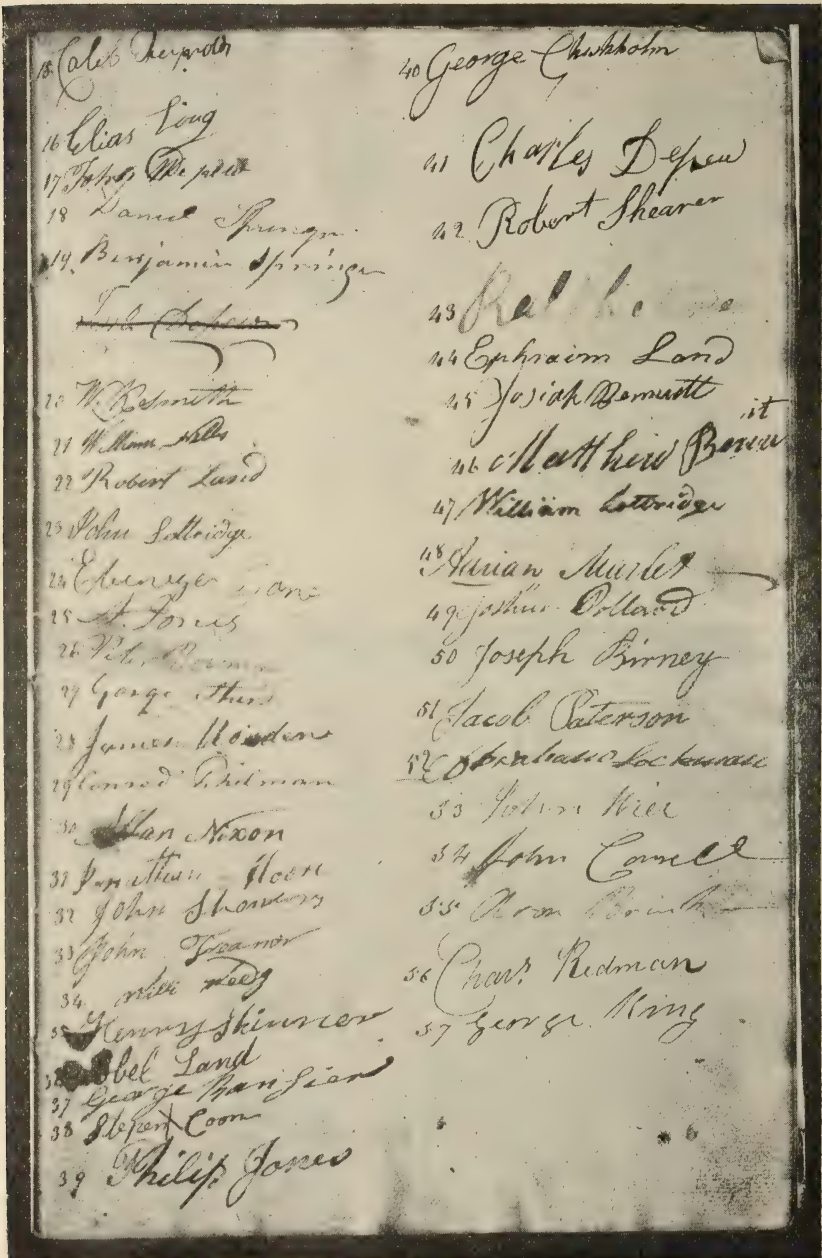 15 Caleb Reynolds
16 Elias Long
17 John Depew
18 Daniel Springer
19 Benjamin Springer
Depew
20 W. Nesmith
21 William Nelles
22 Robert Land
23 John Lottridge
24 Ebenezer Jones
25 A. Jones
26 Peter
27 George
28 James
29 Conrad Tilman
30 Allan Nixon
31 Jonathan Moore
32 John Showers
33 John Treanor
34
35 Henry Skinner
36 Abel Land
37 George
38 Stepen Coon
39 Philip Jones
40 George Chishholm
41 Charles Depew
42 Robert Shearer
43
44 Ephraim Land
45 Josiah Bennett
46 Matthiew
47 William Lottridge
48 Adrian Marlet
49 Joshua Dollard
50 Joseph Birney
51 Jacob Paterson
52
53 John
54 John Cornell
55 Aron
56 Chas. Redman
57 George King